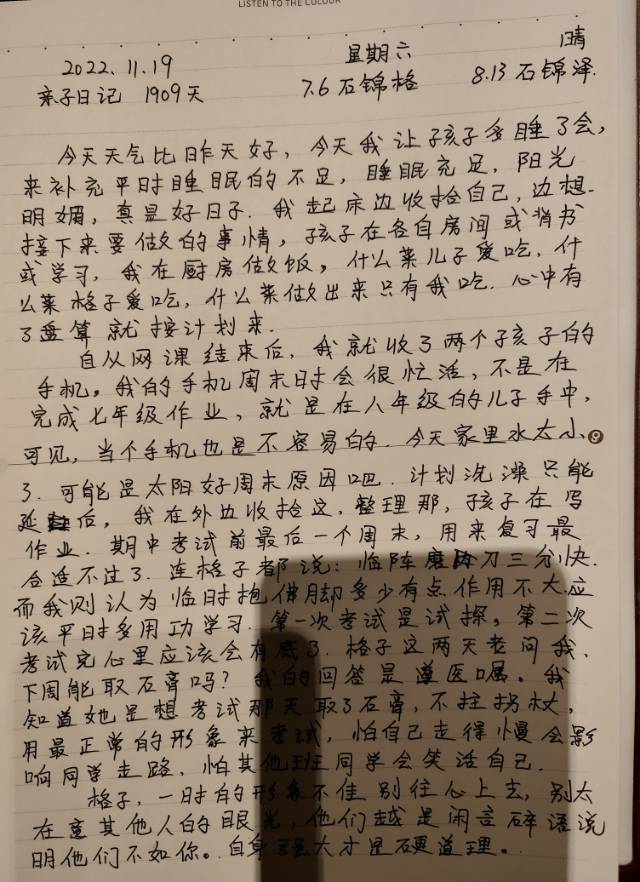 LISTEN TO THE COLOUR
2022.11.19 星期六 晴
亲子日记 1909天 7.6石锦格 8.13石锦泽.
今天天气比昨天好，今天我让孩子多睡了会，
来补充平时睡眠的不足，睡眠充足，阳光
明媚，真是好日子.我起床边收拾自己，边想.
接下来要做的事情，孩子在各自房间或背书
或学习，我在厨房做饭，什么菜儿子爱吃.什
么菜格子爱吃，什么菜做出来只有我吃.心中有
了盘算就按计划来.
自从网课结束后，我就收了两个孩子的
手机，我的手机周末时会很忙活，不是在
完成七年级作业，就是在八年级的儿子手中，
可见，当个手机也是不容易的.今天家里水太小
了.可能是太阳好周末原因吧.计划洗澡只能
延后，我在外边收拾这，整理那，孩子在写
作业.期中考试前最后一个周末，用来复习最
合适不过了.连格子都说：临阵磨刀三分快.
而我则认为临时抱佛脚多少有点作用不大.应
该平时多用功学习.第一次考试是试探，第二次
考试完心里应该会有底了.格子这两天老问我.
下周能取石膏吗？我的回答是遵医嘱。我
知道她是想考试那天取了石膏，不拄拐杖，
用最正常的形象来考试，怕自己走得慢会影
响同学走路.怕其他班同学会笑话自己.
格子，一时的形象不佳别往心上去，别太
在意其他人的眼光，他们越是闲言碎语说
明他们不如你。自身强大才是硬道理。